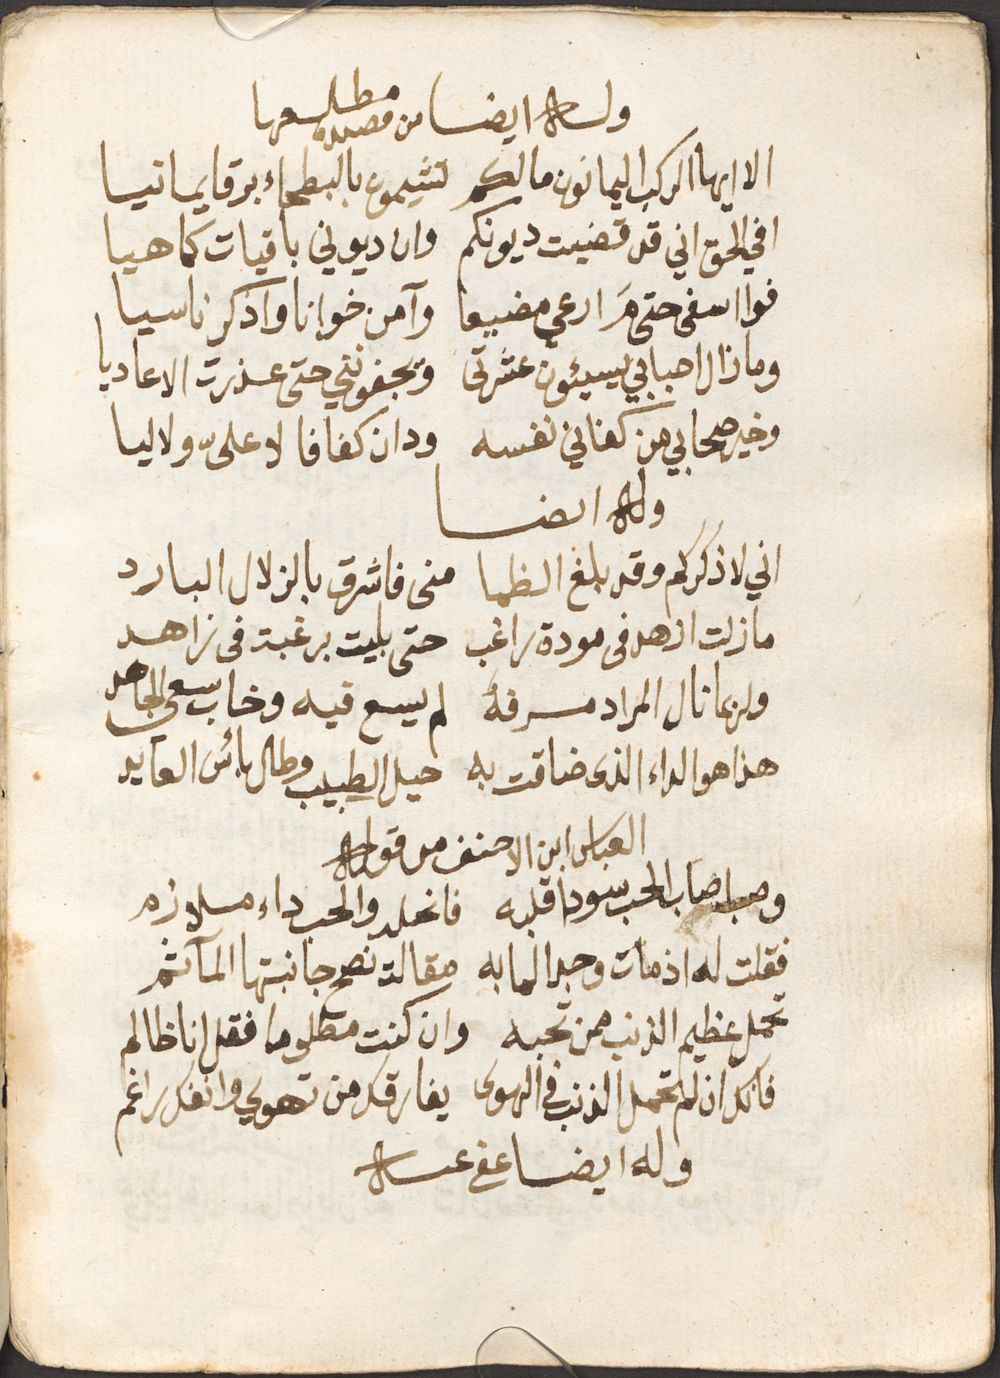 وله ايضا من قصيدة مطلعها
الا ايها الركب اليمانون مالكم تشيمون بالبطحاء برقا يمانيا
افي الحق اني قد قضيت ديونكم وان ديوني باقيات كما هيا
فوا اسفي حتى مَ ارعي مضيعا وآمن خوانا واذكر ناسيا
وما زال احبابي يسيئون عشرتي وتجفونني حتى عذرت الاعاديا
وخير صحابي من كفاني نفسه ودان كفافا لا عليّ ولا ليا
وله ايضا
اني لاذكركم وقد بلغ الظما مني فاشرق بالزلال البارد
مازلت ازهد في مودة راغب حتى بليت برغبت في زاهد
ولربما نال المراد مرفهٌ لم يسع فيه وخاب سعي الجاهد
هذا هو الداء الذى ضاقت به حيل الطبيب وطال يائس العايد
العباس ابن الاحنف من قوله
وصب اصاب الحب سودا قلبه فانحله والحب داء ملازم
فقلت له اذ مات وجدا لما به مقالت نصح جانبتها المآثم
تحمل عظيم الذنب ممن تحبه وان كنت مظلوما فقل انا ظالم
فانك ان لم تحمل الذنب في الهوى يفارقك من تهوي وانفك راغم
وله ايضا عفي عنه